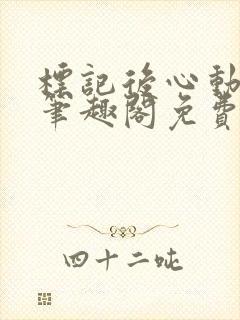 標記後心動
筆趣閣免費
四十二吨